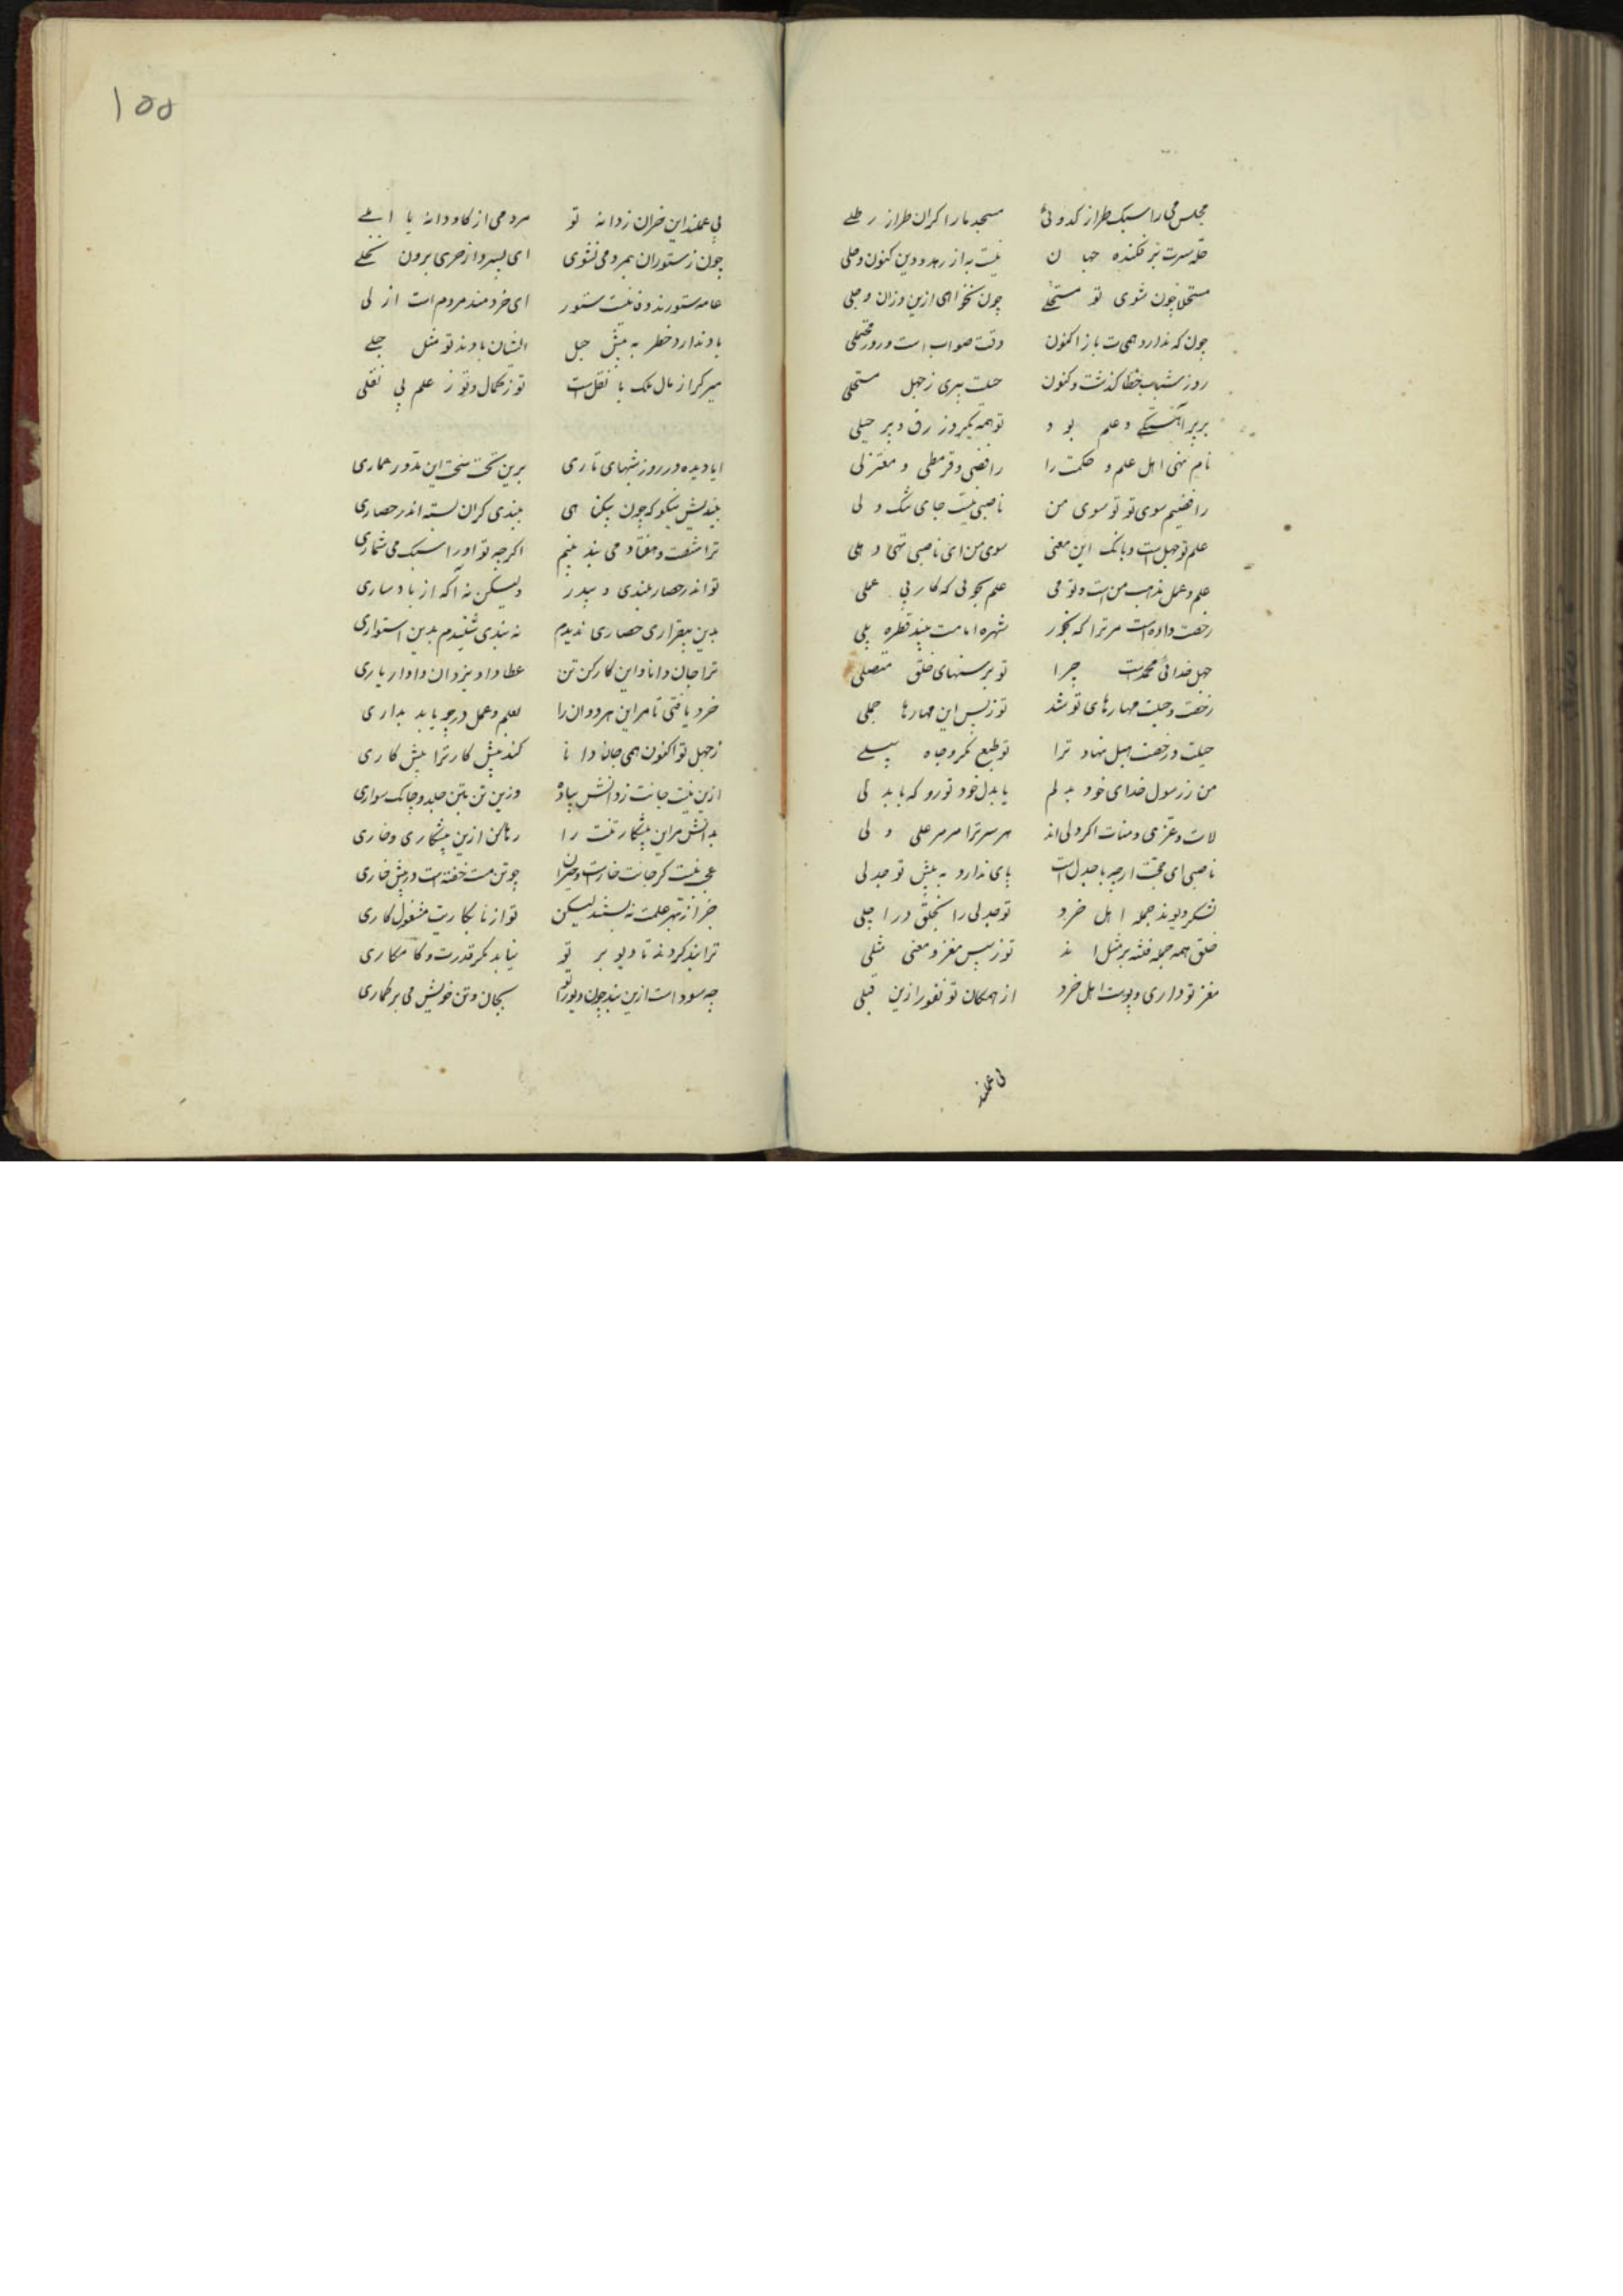 مجلس می را سبک طراز کدوئی    مسجد ما را کران طراز رطلی
حله سرت بر فکنده جهان    نیست به از زهد و دین کنون و حلی
مستحل چون شوی تو مستحلی    چون نخواهی ازین وزان وحلی
چون که ندارد همیت باز اکنون    وقت صواب است و روز محتملی
روز شباب خطا کذشت و کنون    حیلت پیری ز جهل مستحلی
بر پیر آهستکی و علم بود    تو همه یکروز رق و پر حیلی
نام نهی اهل علم و حکمت را    رافضی و قرمطی و معتزلی
رافضیم سوی تو تو سوی من    ناصبی نیست جای شک ولی
علم تو جهل است و بانک این معنی    سوی من ای ناصبی تهی دهلی
علم و عمل مذهب من است و تو می    علم بجوئی که کار بی عملی
رخصت داده است مر ترا که بخور    شهره امامت نبیذ قطره بلی
جهل خدائی محمدست چرا    تو بر سنتهای خلق متصلی
رخصت و حیلت مهارهای تو شد    تو ز پس این مهارها جملی
حیلت و رخصت هبل نهاد ترا    تو طبع مکر و جاه هبلی
من ز رسول خدای خود بدلم    یا بدل خود تو رو که با بدلی
لات و عزی و منات اکر ولی اند    هر سر ترا مر مر علی ولی
ناصبی ای حجت ار چه با جدل است    پای ندارد به پیش تو جدلی
لشکر دیوند جمله اهل خرد    تو جدلی را بحلق در اجلی
خلق همه جمله فتنه بر مثل اند    تو ز پس مغز و معنی مثلی
مغز تو داری و پوست اهل خرد    از همکان تو نفور ازین قبلی
بی عملند
۱۵۵
بی عملند این خران ز دانه تو    مردمی از کاو دانه با املی
چون ز ستوران بمردمی نشوی    ای پسر و از خری برون نجلی
عامه ستورند و فانیست ستور    ای خردمند مردم است ازلی
باد ندارد خطر به پیش جبل    ایشان بادند تو مثل جبلی
میر کر از مال ملک با ثقل است    تو ز کمال و تو ز علم بی ثقلی
ایا دیده در روز شبهای تاری    برین تخت سخت این مدور عماری
بیندیش نیکو که چون بیکناهی    ببندی کران بسته اندر حصاری
ترا شصت و هفتاد می بند بینم    اکرچه تو او را سبک می شماری
تو اندر حصار بلندی و بیدر    ولیکن نه آکه از باد ساری
بدین بیقراری حصاری ندیدم    نه بندی شنیدم بدین استواری
ترا جان دانا و این کارکن تن    عطا داد یزدان دادار باری
خرد یافتی تا مر این هر دوان را    بعلم و عمل در چو باید بداری
ز جهل تو اکنون همی جان دانا    کند پیش کار ترا پیش کاری
ازین نیست جانت ز دانش پیاده    وزین تن بتن جلد و چابک سواری
بدانش مر این پیشکار تنت را    رها کن ازین پیشکاری و خاری
عجب نیست کر جانت خارست و حیران    چو تن مست خفته است در پیش خاری
خرد از تهر علمت نه بستند لیکن    تو از نابکاریت مشغول کاری
ترا بند کردند تا دیو بر تو    نیابد مکر قدرت و کامکاری
چه سود است ازین بند چون دیو را تو    بجان و تن خویش می بر کماری